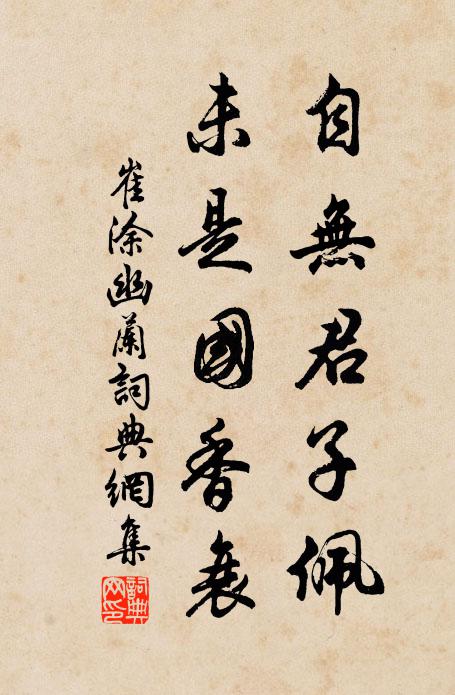 自無君子佩
未是國香衰
崔涂幽蘭詞典網集
詞典網印